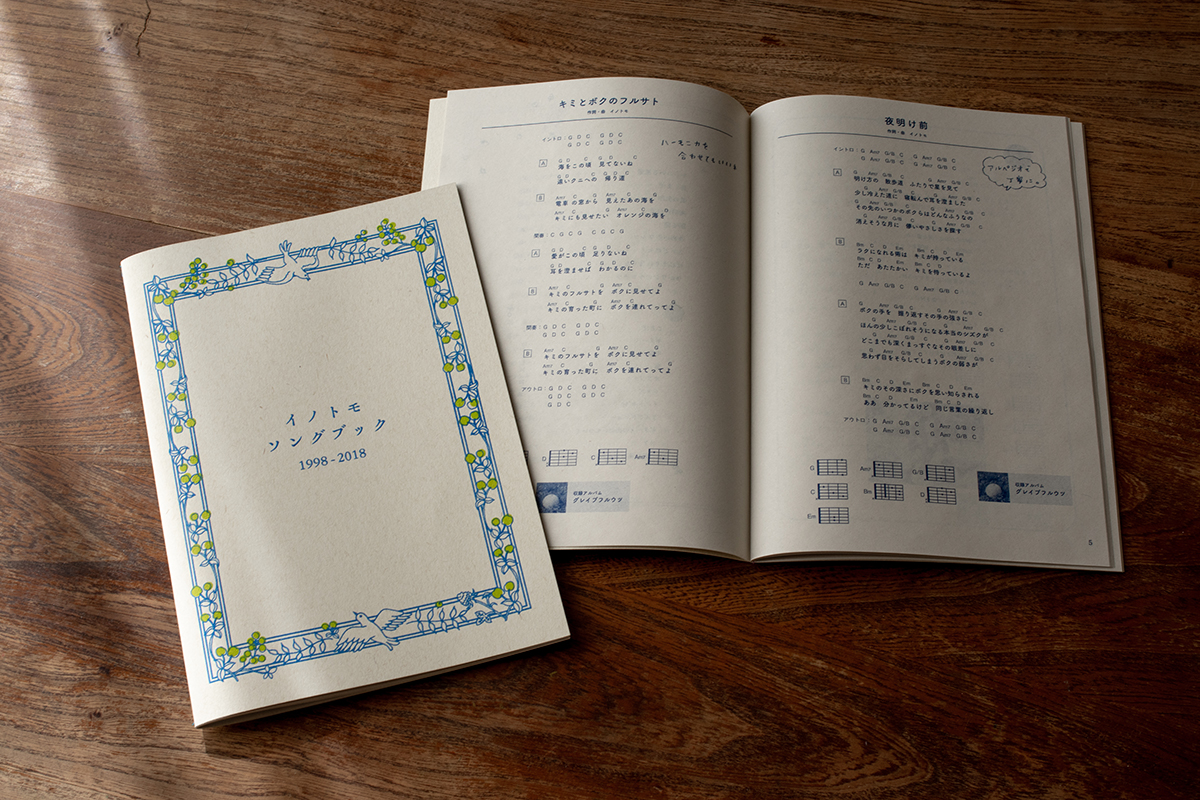 イノトモ
ソングブック
1998-2018
キミとボクのフルサト
作詞・曲 イノトモ
ハーモニカを
合わせても
イントロ: G D C G D C
G D C G D C
A
G D C G D C
海をこの頃 見てないね
G D C G D C
遠いクニへの 帰り道
B
Am7 C G Am7 C G
電車の窓から 見えたあの海を
Am7 C G Am7 C D
キミにも見せたい オレンジの海を
間奏: C G C G C G C G
A
G D C G D C
愛がこの頃 足りないね
G D C G D C
耳を澄ませば わかるのに
B
Am7 C G Am7 C G
キミのフルサトを ボクに見せてよ
Am7 C G Am7 C G
キミの育った町に ボクを連れてってよ
間奏: G D C G D C
G D C G D C
B
Am7 C G Am7 C G
キミのフルサトを ボクに見せてよ
Am7 C G Am7 C G
キミの育った町に ボクを連れてってよ
アウトロ: G D C G D C
G D C G D C
G D C
D C Am7
収録アルバム
グレイプフルウツ
夜明け前
作詞・曲 イノトモ
アルペジオで
丁寧に。
イントロ: G Am7 G/B C G Am7 G/B C
G Am7 G/B C G Am7 G/B C
A
G Am7 G/B C G Am7 G/B C
明け方の 散歩道 ふたりで星を見て
G Am7 G/B C G Am7 G/B C
少し冷えた道に 寝転んで耳を澄ました
G Am7 G/B C G Am7 G/B C
その先のいつかのボクらはどんなふうなの
G Am7 G/B C G Am7 G/B C
消えそうな月に 儚いやさしさを探す
B
Bm C D Em Bm C D Em
ラクになれる術は キミが持っている
Bm C D Em Bm C D
ただ あたたかい キミを待っているよ
G Am7 G/B C G Am7 G/B C
A
G Am7 G/B C G Am7 G/B C
ボクの手を 握り返すその手の強さに
G Am7 G/B C G Am7 G/B C
ほんの少しこぼれそうになる本当のシズクが
G Am7 G/B C G Am7 G/B C
どこまでも深くまっすぐなその眼差しに
G Am7 G/B C G Am7 G/B C
思わず目をそらしてしまうボクの弱さが
B
Bm C D Em Bm C D Em
キミのその深さにボクを思い知らされる
Bm C D Em Bm C G
ああ 分かってるけど 同じ言葉の繰り返し
アウトロ: G Am7 G/B C G Am7 G/B C
G Am7 G/B C G Am7 G/B C
G Am7 G/B
C Bm D
Em
収録アルバム
グレイプフルウツ
5